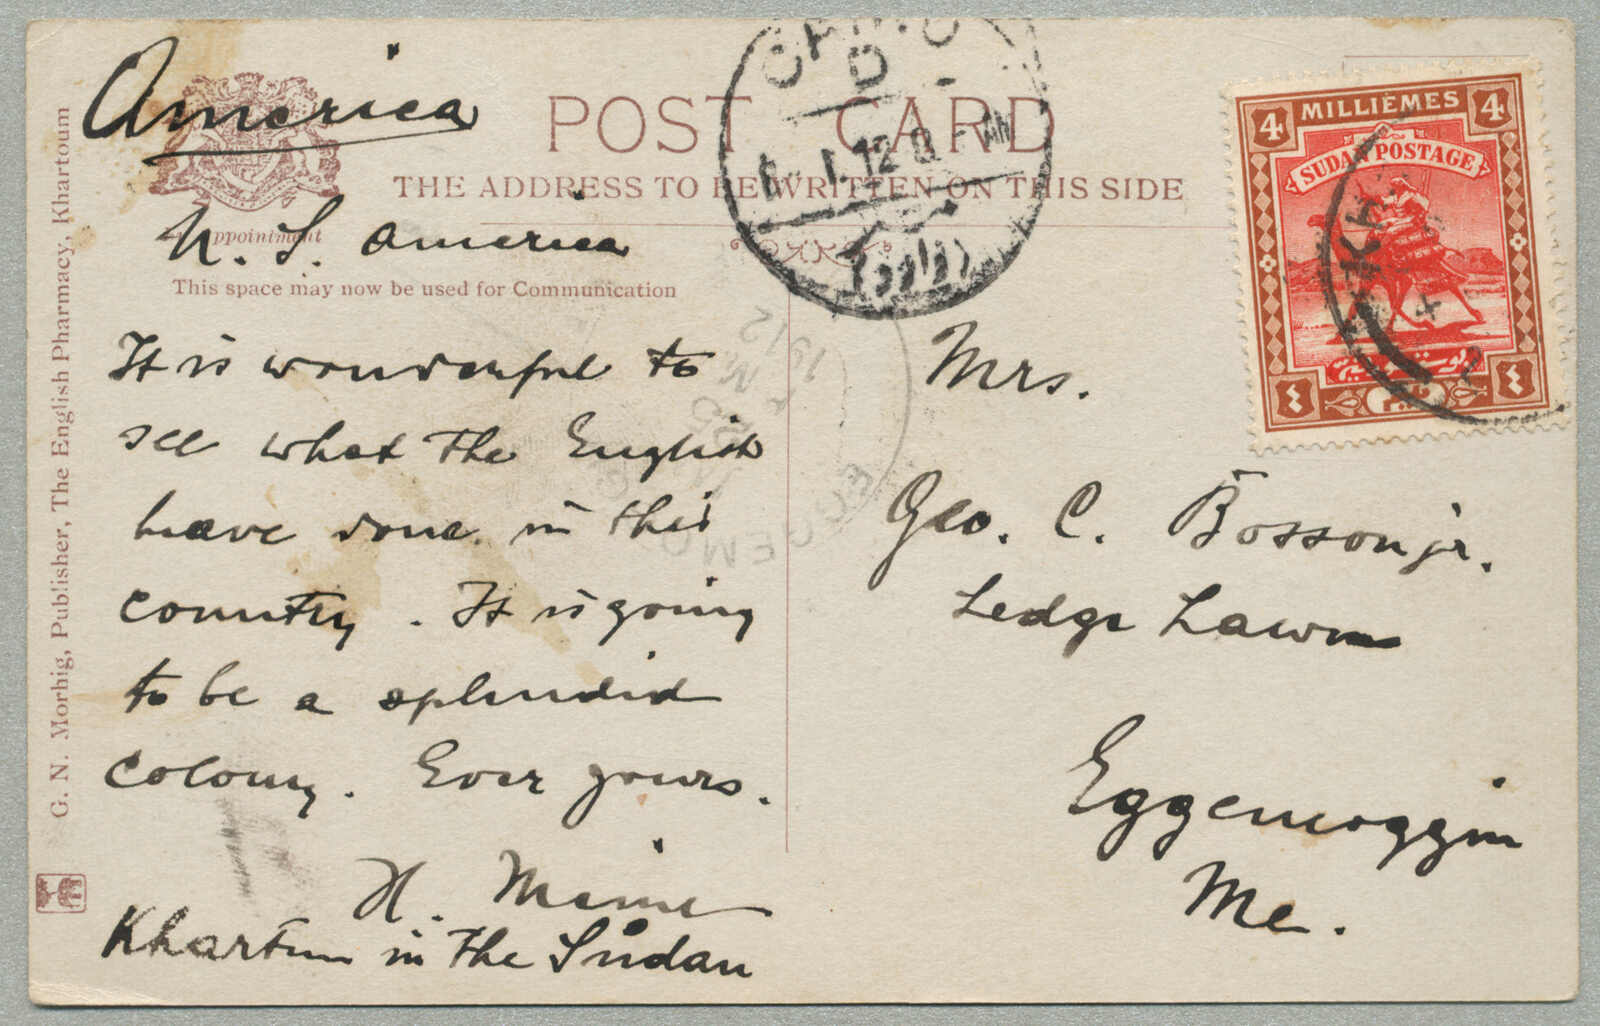 America
U. S. America
POST CARD
THE ADDRESS TO BE WRITTEN ON THIS SIDE
Appointment
This space may now be used for Communication
It is wonderful to
see what the English
have done in this
country. It is going
to be a splendid
colony. Ever yours.
H.
Khartum in the Sudan
G. N. Morhig, Publisher, The English Pharmacy, Khartoum
CAIRO
D
I. 12
4 MILLIÈMES 4
SUDAN POSTAGE
بوستة سودانية
٤ مليم ٤
KH
Mrs.
Geo. C. Bosson jr.
Ledge Lawn
Eggemoggin
Me.
EGGEMO
1912